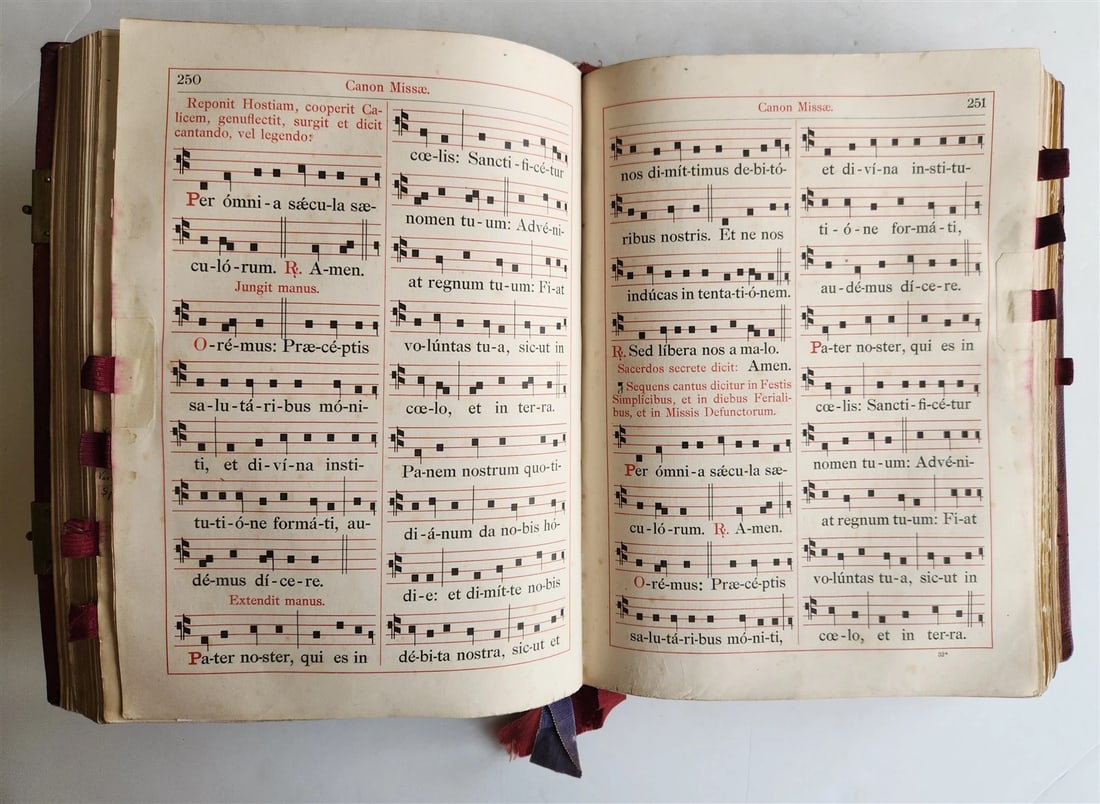 250
Canon Missæ.
Reponit Hostiam, cooperit Ca-
licem, genuflectit, surgit et dicit
cantando, vel legendo:
Per ómni-a sǽcu-la sæ-
cu-ló-rum. ℟. A-men.
Jungit manus.
O-ré-mus: Præ-cé-ptis
sa-lu-tá-ri-bus mó-ni-
ti, et di-ví-na insti-
tu-ti-ó-ne formá-ti, au-
dé-mus dí-ce-re.
Extendit manus.
Pa-ter no-ster, qui es in
cœ-lis: Sancti-fi-cé-tur
nomen tu-um: Advé-ni-
at regnum tu-um: Fi-at
vo-lúntas tu-a, sic-ut in
cœ-lo, et in ter-ra.
Pa-nem nostrum quo-ti-
di-á-num da no-bis hó-
di-e: et di-mít-te no-bis
dé-bi-ta nostra, sic-ut et
Canon Missæ.
251
nos di-mít-timus de-bi-tó-
ribus nostris. Et ne nos
indúcas in tenta-ti-ó-nem.
℟. Sed líbera nos a ma-lo.
Sacerdos secrete dicit: Amen.
Sequens cantus dicitur in Festis
Simplicibus, et in diebus Feriali-
bus, et in Missis Defunctorum.
Per ómni-a sǽcu-la sæ-
cu-ló-rum. ℟. A-men.
O-ré-mus: Præ-cé-ptis
sa-lu-tá-ri-bus mó-ni-ti,
et di-ví-na in-sti-tu-
ti-ó-ne for-má-ti,
au-dé-mus dí-ce-re.
Pa-ter no-ster, qui es in
cœ-lis: Sancti-fi-cé-tur
nomen tu-um: Advé-ni-
at regnum tu-um: Fi-at
vo-lúntas tu-a, sic-ut in
cœ-lo, et in ter-ra.